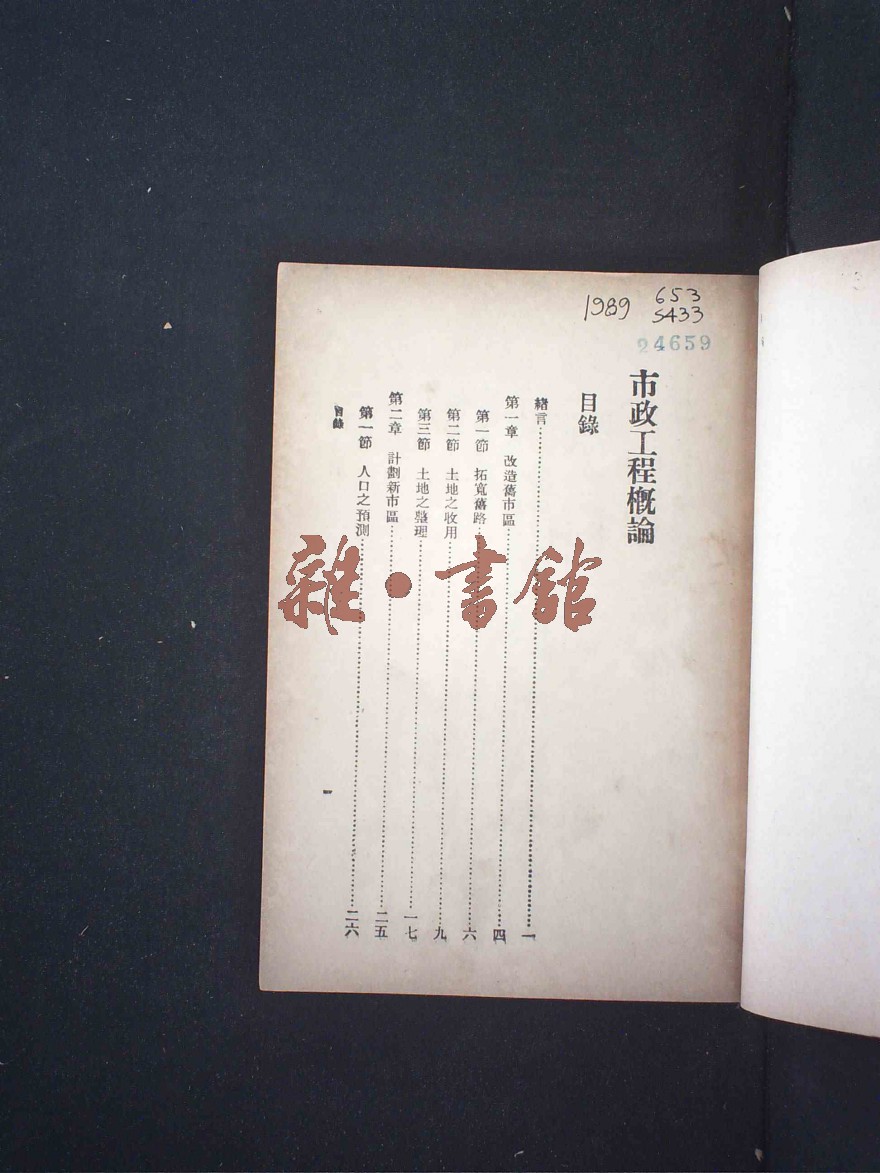 1989 653
5433
24659
市政工程概論
目錄
緒言…一
第一章 改造舊市區…四
第一節 拓寬舊路…六
第二節 土地之收用…九
第三節 土地之整理…一七
第二章 計劃新市區…二五
第一節 人口之預測…二六
目錄
一
雜·書館